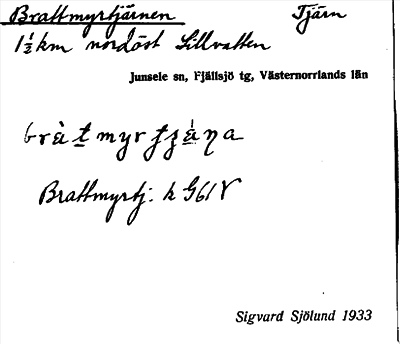 Brattmyrtjärnen Tjärn
1½ km nordöst Lillvatten
Junsele sn, Fjällsjö tg, Västernorrlands län
Brattmyrtj. k G61V
Sigvard Sjölund 1933